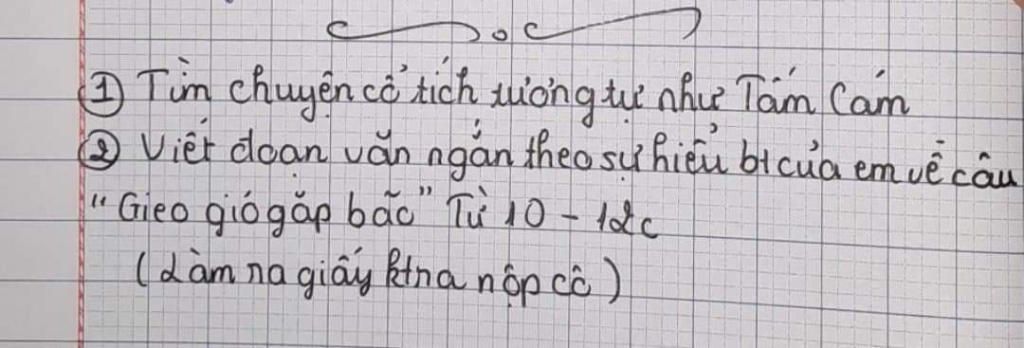 ① Tìm chuyện cổ tích tương tự như Tấm Cám
② Viết đoạn văn ngắn theo sự hiểu bt của em về câu
"Gieo gió gặp bão" Từ 10 - 12c
(Làm ra giấy ktra nộp cô)